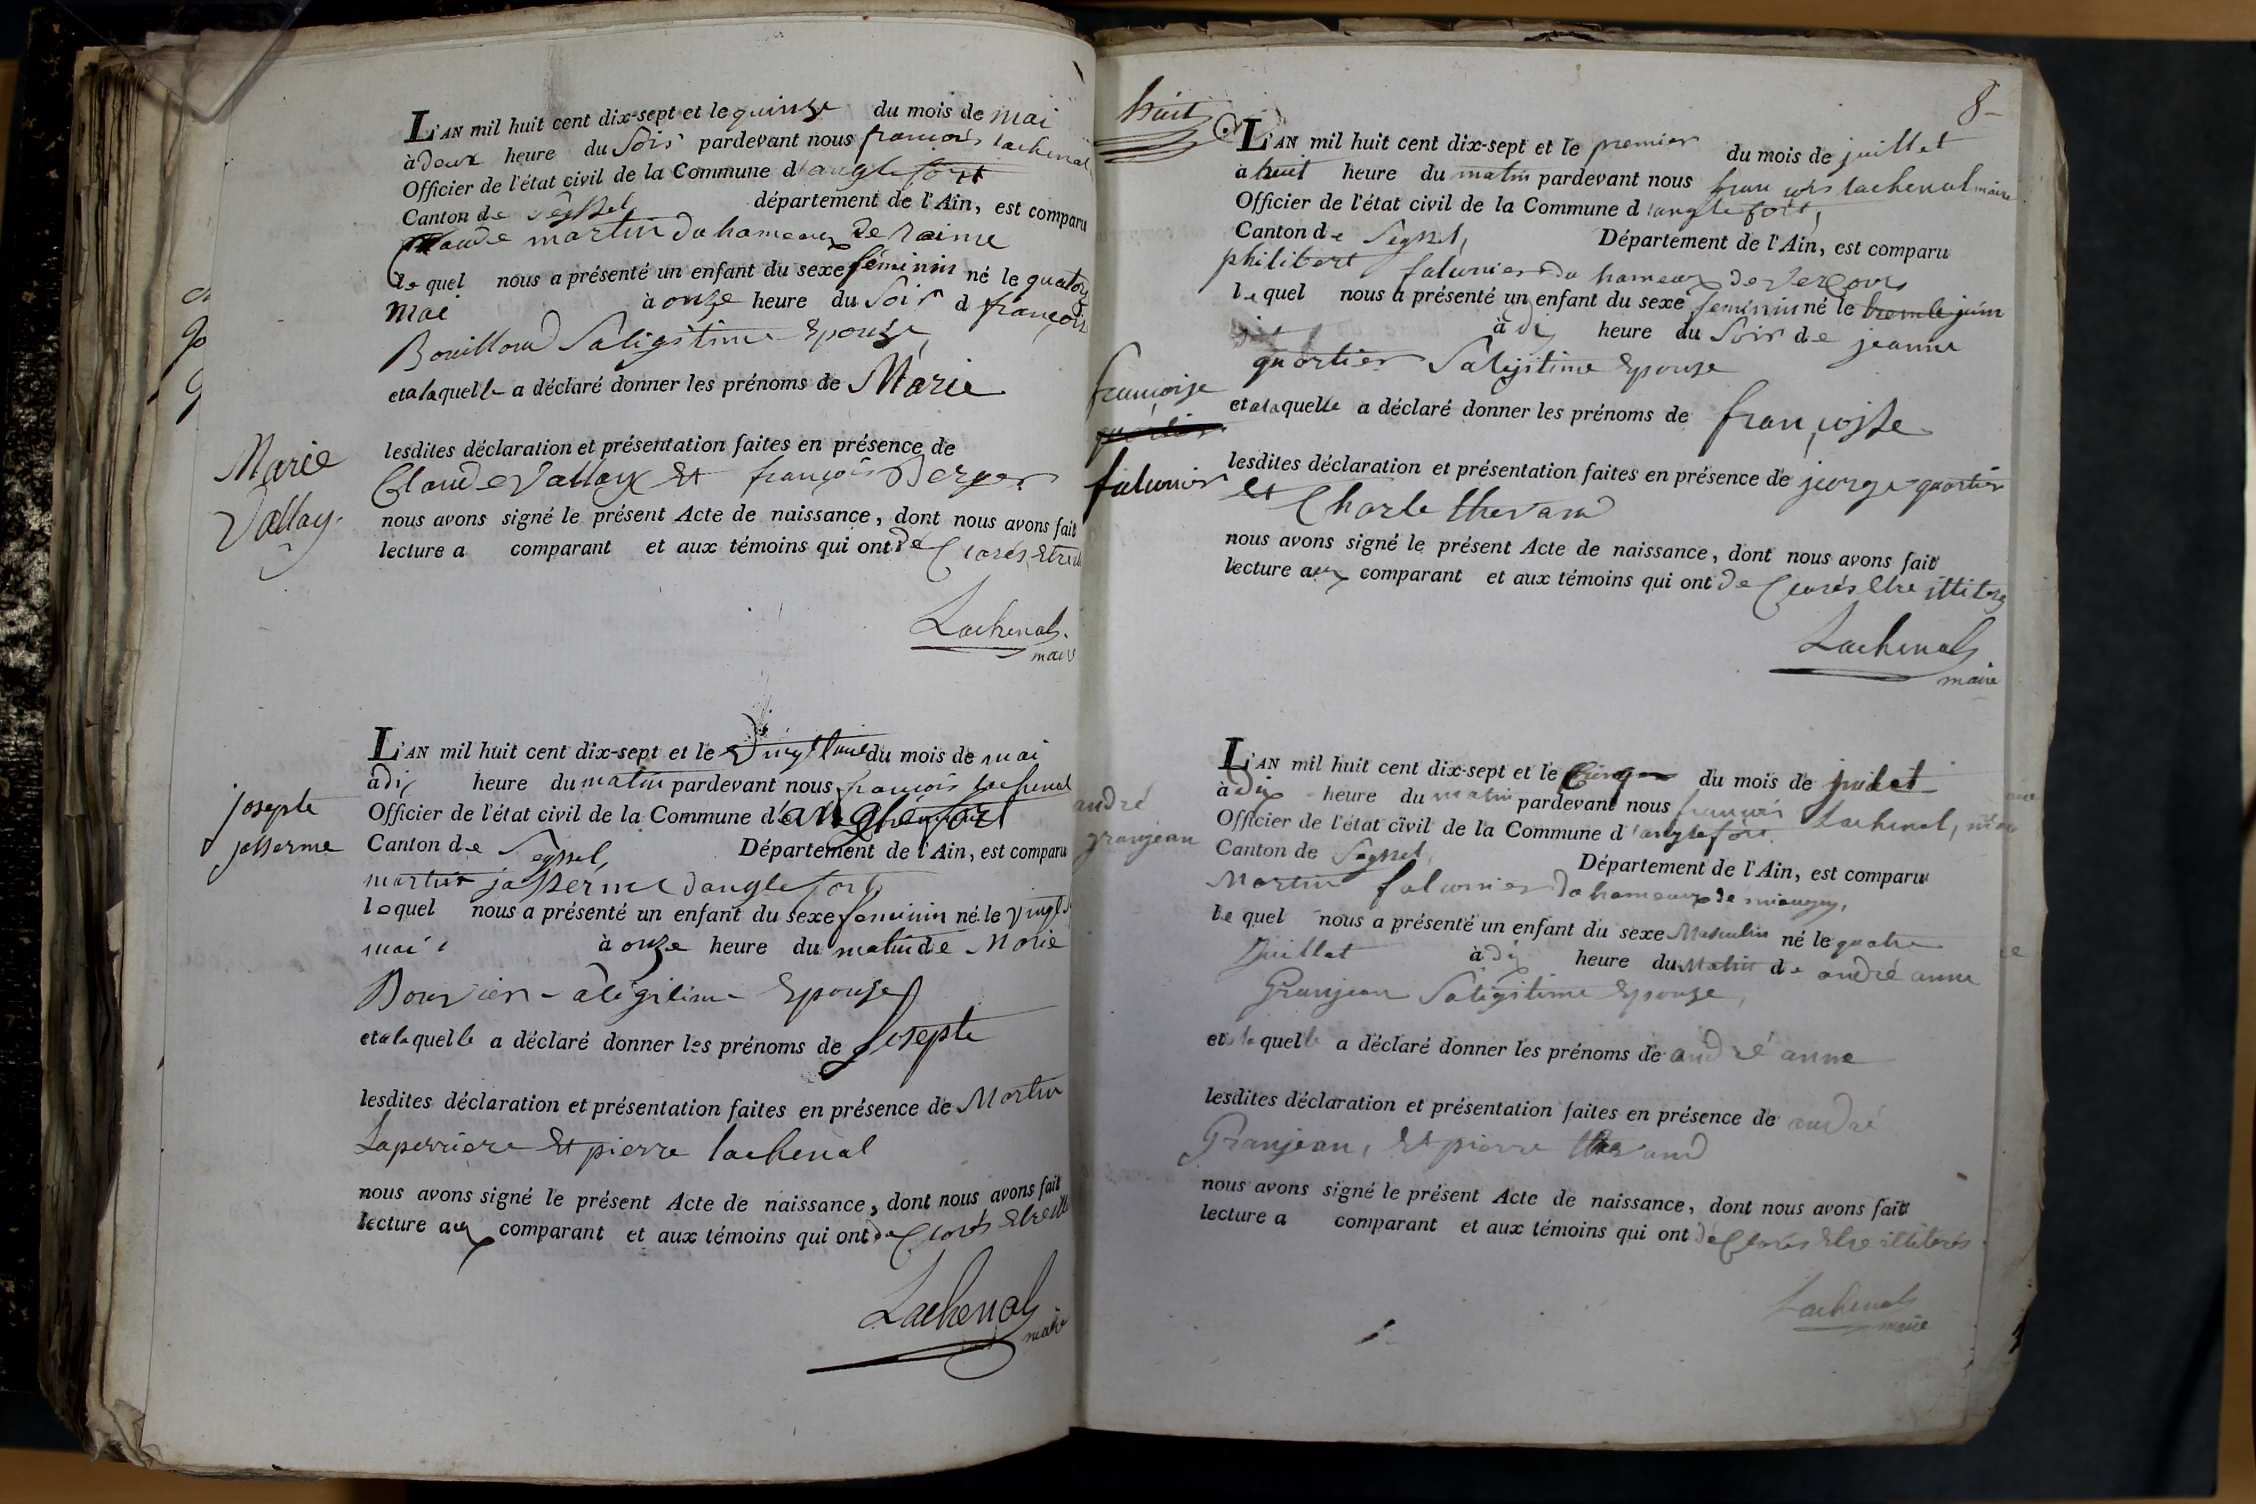 L'AN mil huit cent dix-sept et le quinze du mois de mai
à deux heure du Soir pardevant nous françois lachenal
Officier de l'état civil de la Commune d'anglefort
Canton de Seyssel département de l'Ain, est comparu
Claude martin du hameaux De
le quel nous a présenté un enfant du sexe féminin né le quatorze
mai à onze heure du Soir d françoise
Bouilloud Saligitime Epouze,
et a laquelle a déclaré donner les prénoms de Marie
Marie
Vallay.
lesdites déclaration et présentation faites en présence de
Claude Vallay Et françois Berger
nous avons signé le présent Acte de naissance, dont nous avons fait
lecture a comparant et aux témoins qui ont de Clarés Etre
Lachenal.
maire
L'AN mil huit cent dix-sept et le du mois de mai
à dix heure du matin pardevant nous françois lachenal
josepte
jasserme
Officier de l'état civil de la Commune d'anglefort
Canton de Seyssel, Département de l'Ain, est comparu
martin jasserme danglefort
le quel nous a présenté un enfant du sexe feminin né le vingt
mai à onze heure du matin de Marie
Bouvier Saligitime Epouze
et a laquelle a déclaré donner les prénoms de Josepte
lesdites déclaration et présentation faites en présence de Martin
Laperriere Et pierre lachenal
nous avons signé le présent Acte de naissance, dont nous avons fait
lecture aux comparant et aux témoins qui ont de Clarés Etre
Lachenal
maire
huit
8
L'AN mil huit cent dix-sept et le premier du mois de juillet
à huit heure du matin pardevant nous françois lachenal maire
Officier de l'état civil de la Commune d'anglefort,
Canton de Seyssel, Département de l'Ain, est comparu
philibert falconier du hameaux de
le quel nous a présenté un enfant du sexe feminin né le trente juin
à dix heure du Soir de jeanne
quartier Saligitime Epouze
françoise
quartier
falconier
et a laquelle a déclaré donner les prénoms de françoise
lesdites déclaration et présentation faites en présence de jeorge quartier
Et Charle thevand
nous avons signé le présent Acte de naissance, dont nous avons fait
lecture aux comparant et aux témoins qui ont de Clarés Etre illiterés
Lachenal
maire
L'AN mil huit cent dix-sept et le Cinq du mois de juillet
à dix heure du matin pardevant nous françois Lachenal, maire
andré
granjean
Officier de l'état civil de la Commune d'anglefort.
Canton de Seyssel, Département de l'Ain, est comparu
Martin falconier du hameaux de
le quel nous a présenté un enfant du sexe Masculin né le quatre
Juillet à dix heure du Matin de andré anne
Granjean Saligitime Epouze,
et a laquelle a déclaré donner les prénoms de andré anne
lesdites déclaration et présentation faites en présence de andré
Granjean, Et pierre thevand
nous avons signé le présent Acte de naissance, dont nous avons fait
lecture a comparant et aux témoins qui ont de Clarés Etre illiterés
Lachenal
maire